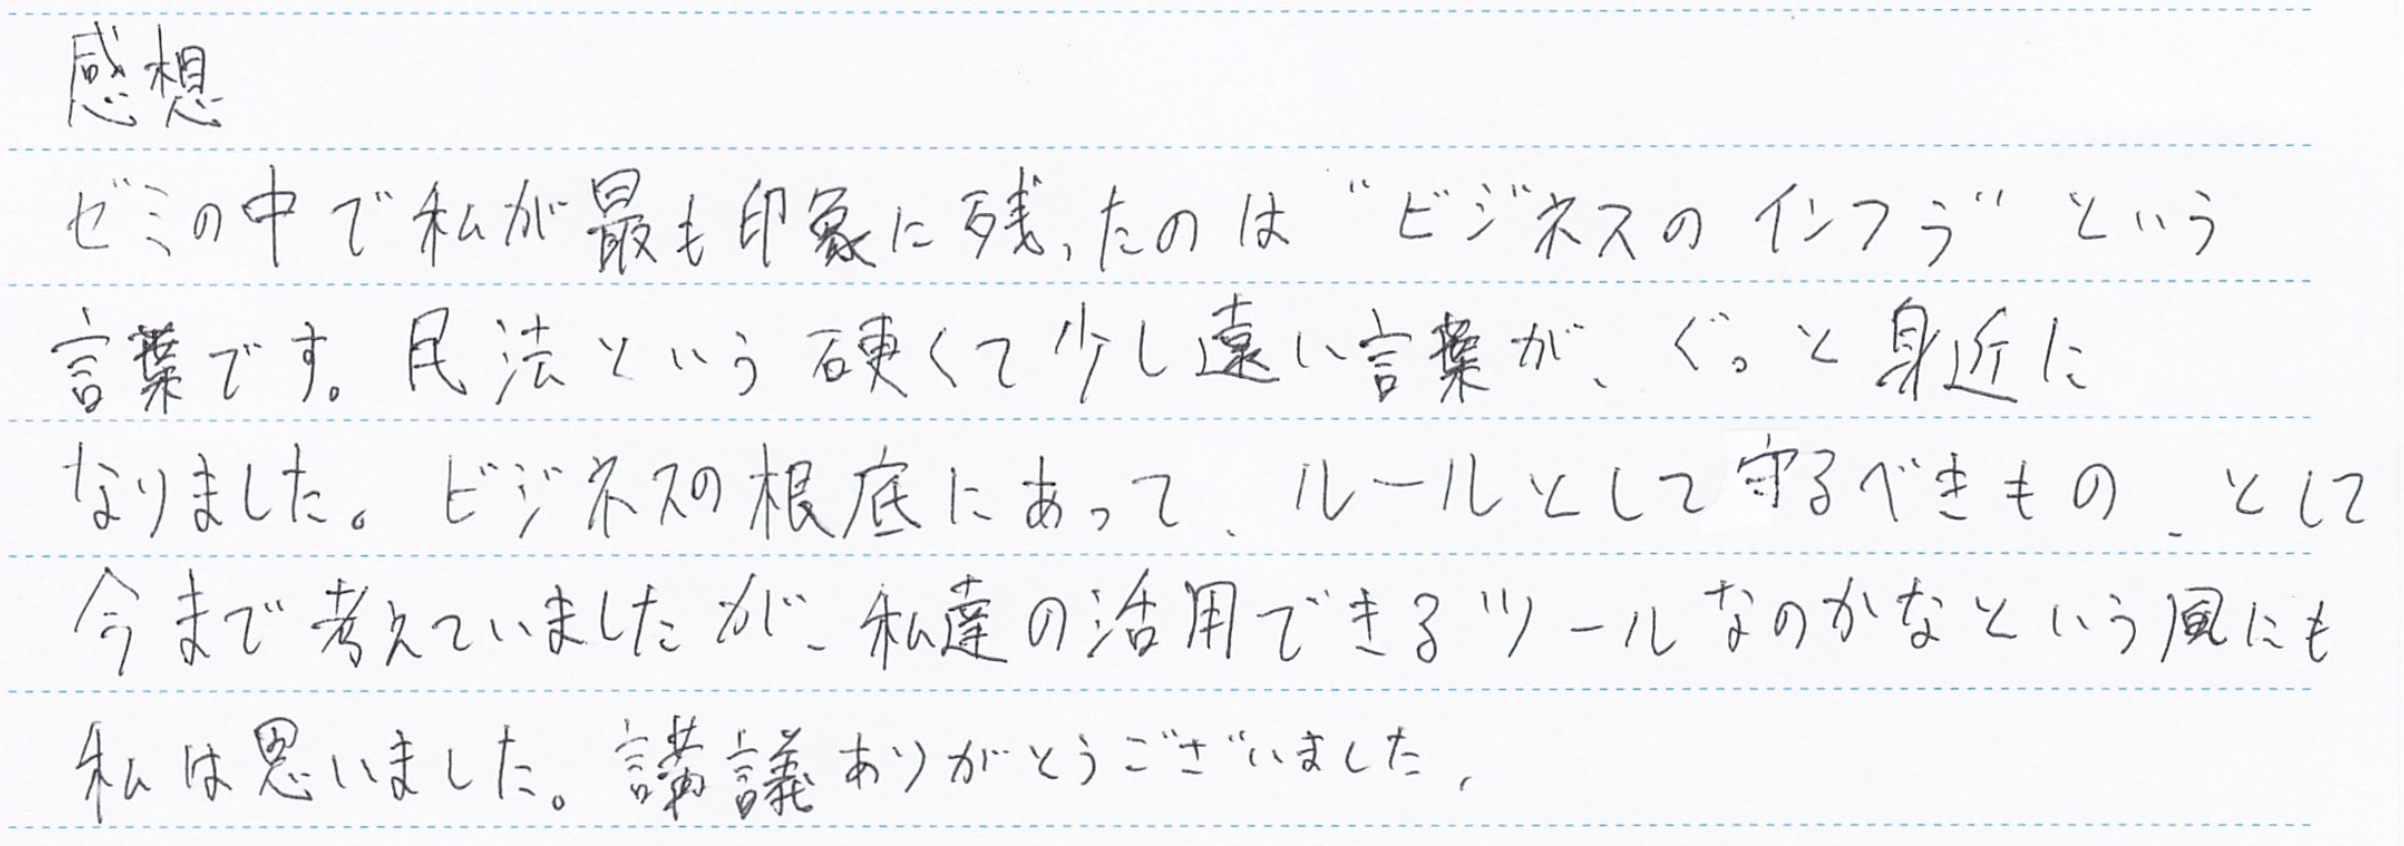 感想
ゼミの中で私が最も印象に残ったのは"ビジネスのインフラ"という
言葉です。民法という硬くて少し遠い言葉が、ぐっと身近に
なりました。ビジネスの根底にあって、ルールとして守るべきもの、として
今まで考えていましたが、私達の活用できるツールなのかなという風にも
私は思いました。講議ありがとうございました。